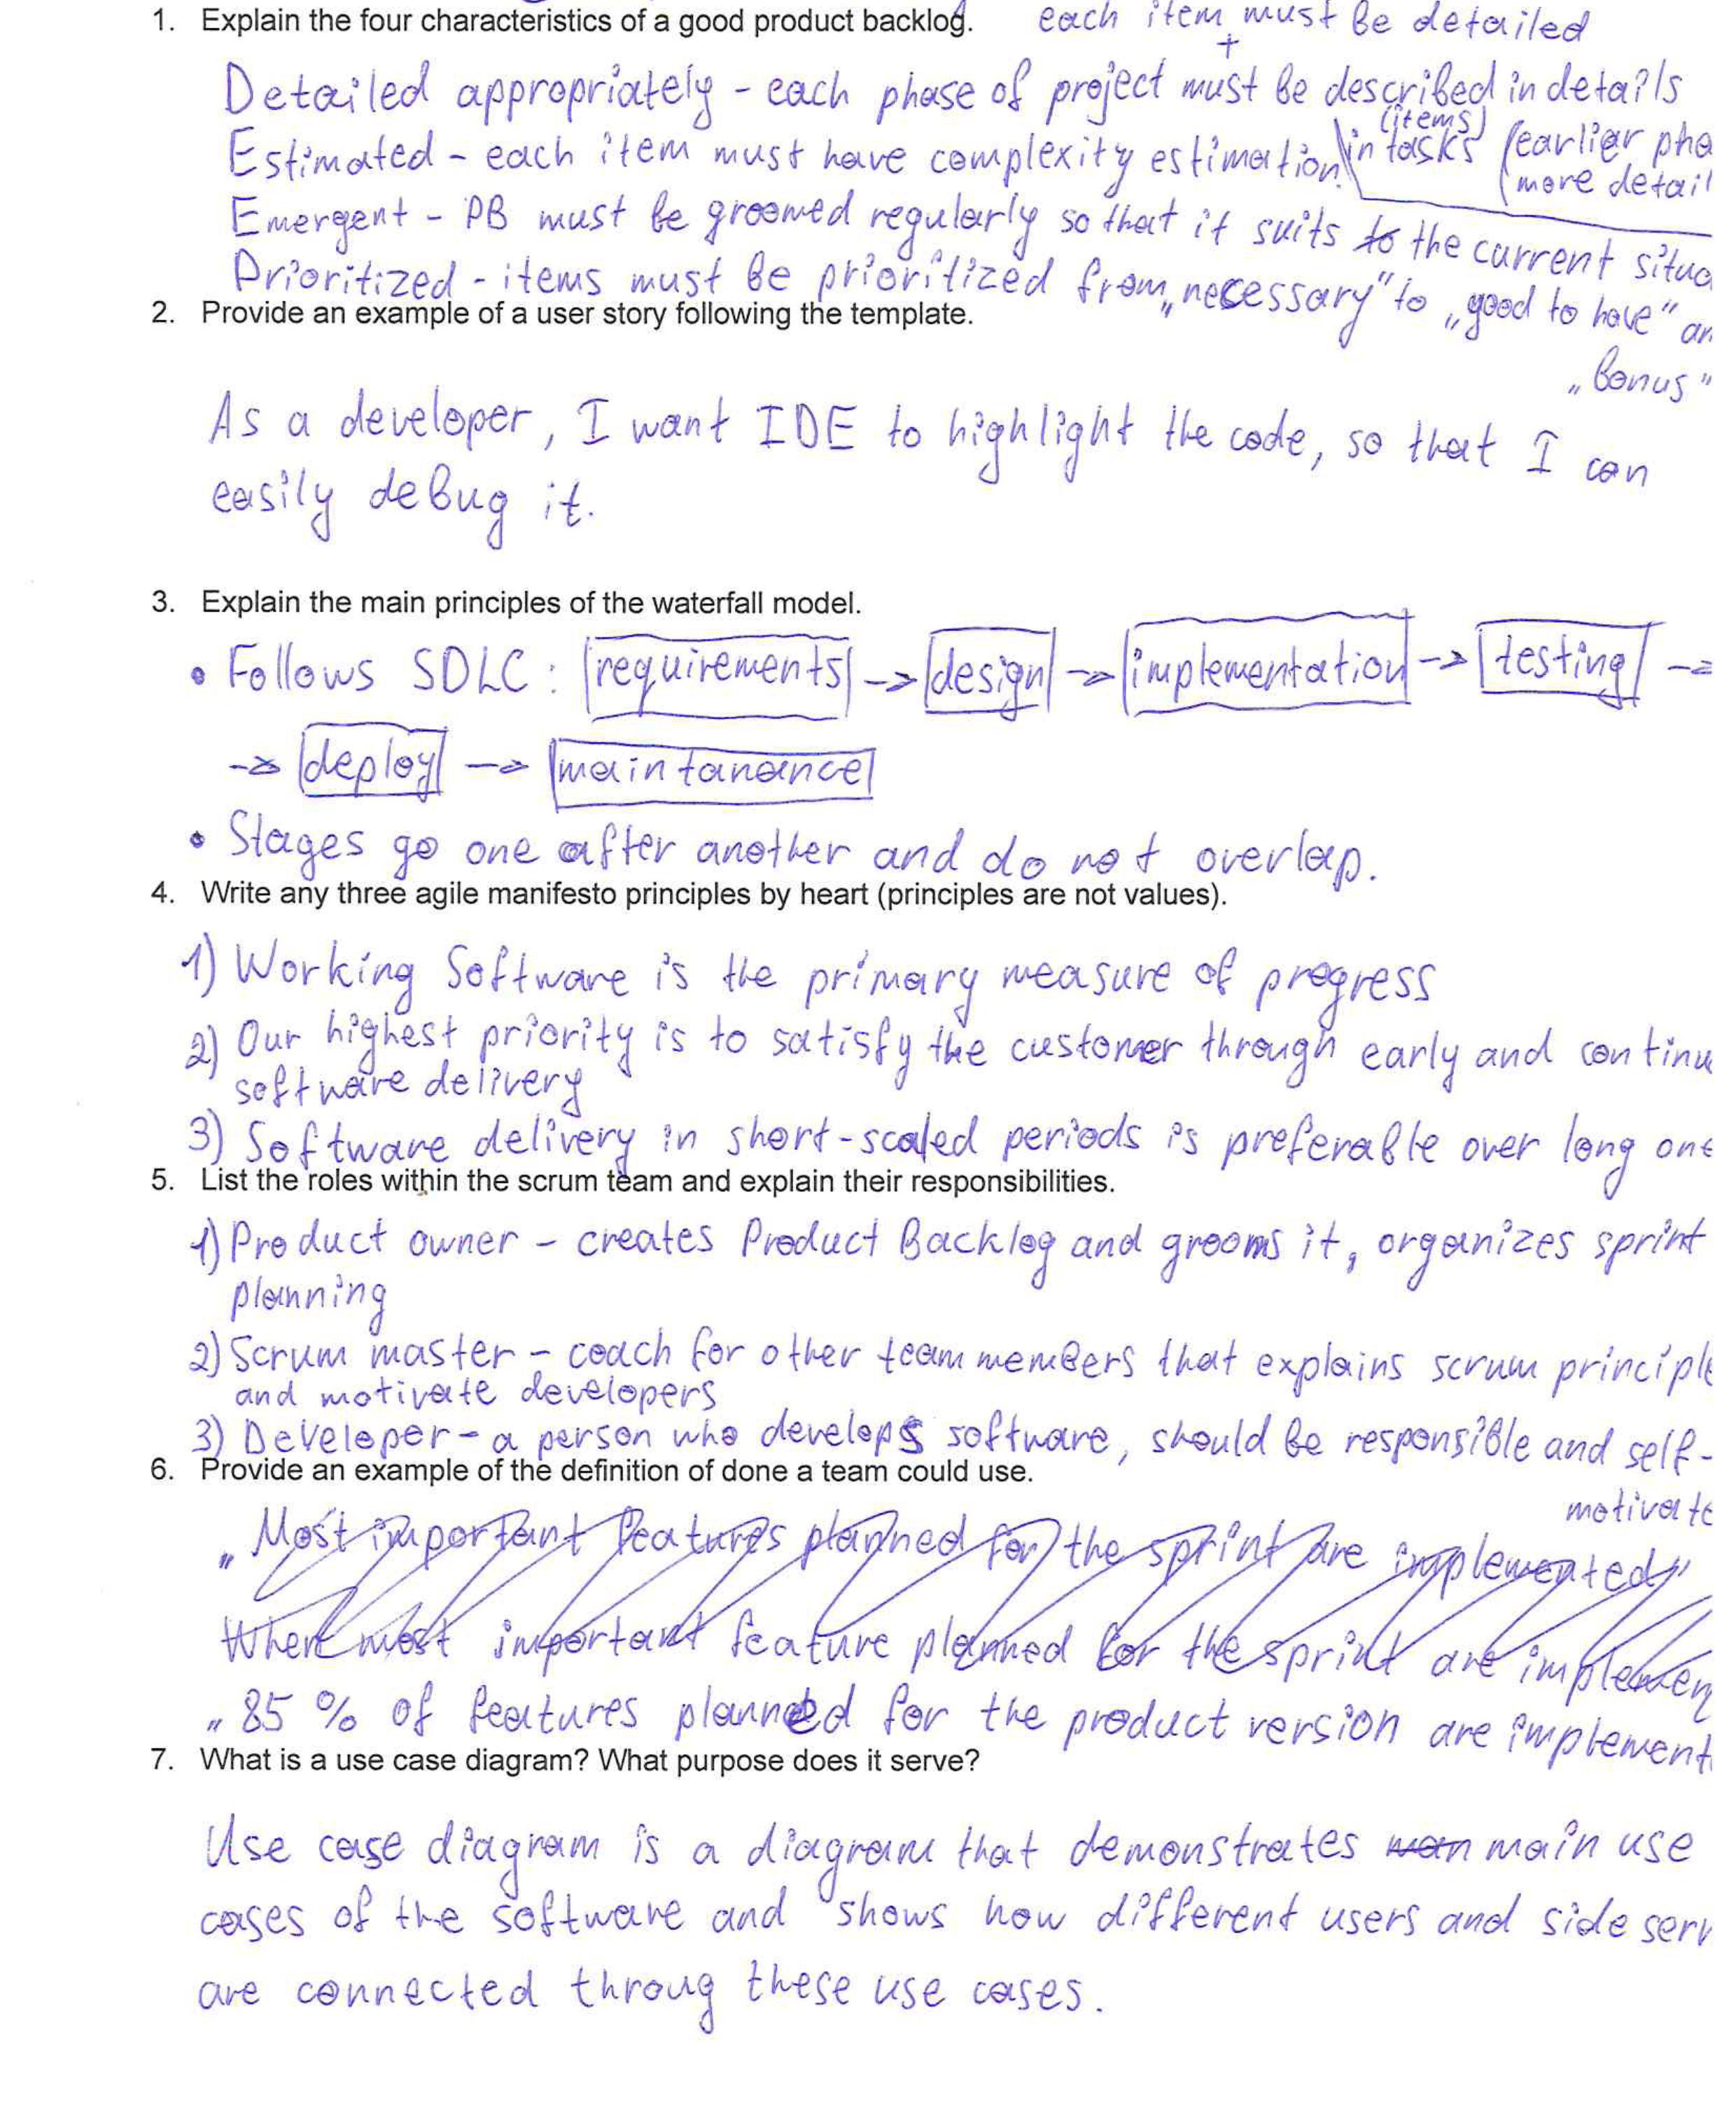 1. Explain the four characteristics of a good product backlog. each item must be detailed
+
Detailed appropriately - each phase of project must be described in details
(items)
Estimated - each item must have complexity estimation. in tasks (earlier pha
(more detail
Emergent - PB must be groomed regularly so that it suits to the current situa
Prioritized - items must be prioritized from „necessary" to „good to have" an
„bonus"
2. Provide an example of a user story following the template.
As a developer, I want IDE to highlight the code, so that I can
easily debug it.
3. Explain the main principles of the waterfall model.
• Follows SDLC: requirements -> design -> implementation -> testing ->
-> deploy -> maintanance
• Stages go one after another and do not overlap.
4. Write any three agile manifesto principles by heart (principles are not values).
1) Working Software is the primary measure of progress
2) Our highest priority is to satisfy the customer through early and continu
software delivery
3) Software delivery in short-scaled periods is preferable over long one
5. List the roles within the scrum team and explain their responsibilities.
1) Product owner - creates Product Backlog and grooms it, organizes sprint
planning
2) Scrum master - coach for other team members that explains scrum principle
and motivate developers
3) Developer - a person who develops software, should be responsible and self-
motivate
6. Provide an example of the definition of done a team could use.
„Most important features planned for the sprint are implemented"
When most important feature planned for the sprint are implemen
„85 % of features planned for the product version are implement
7. What is a use case diagram? What purpose does it serve?
Use case diagram is a diagram that demonstrates main use
cases of the software and shows how different users and side serv
are connected throug these use cases.